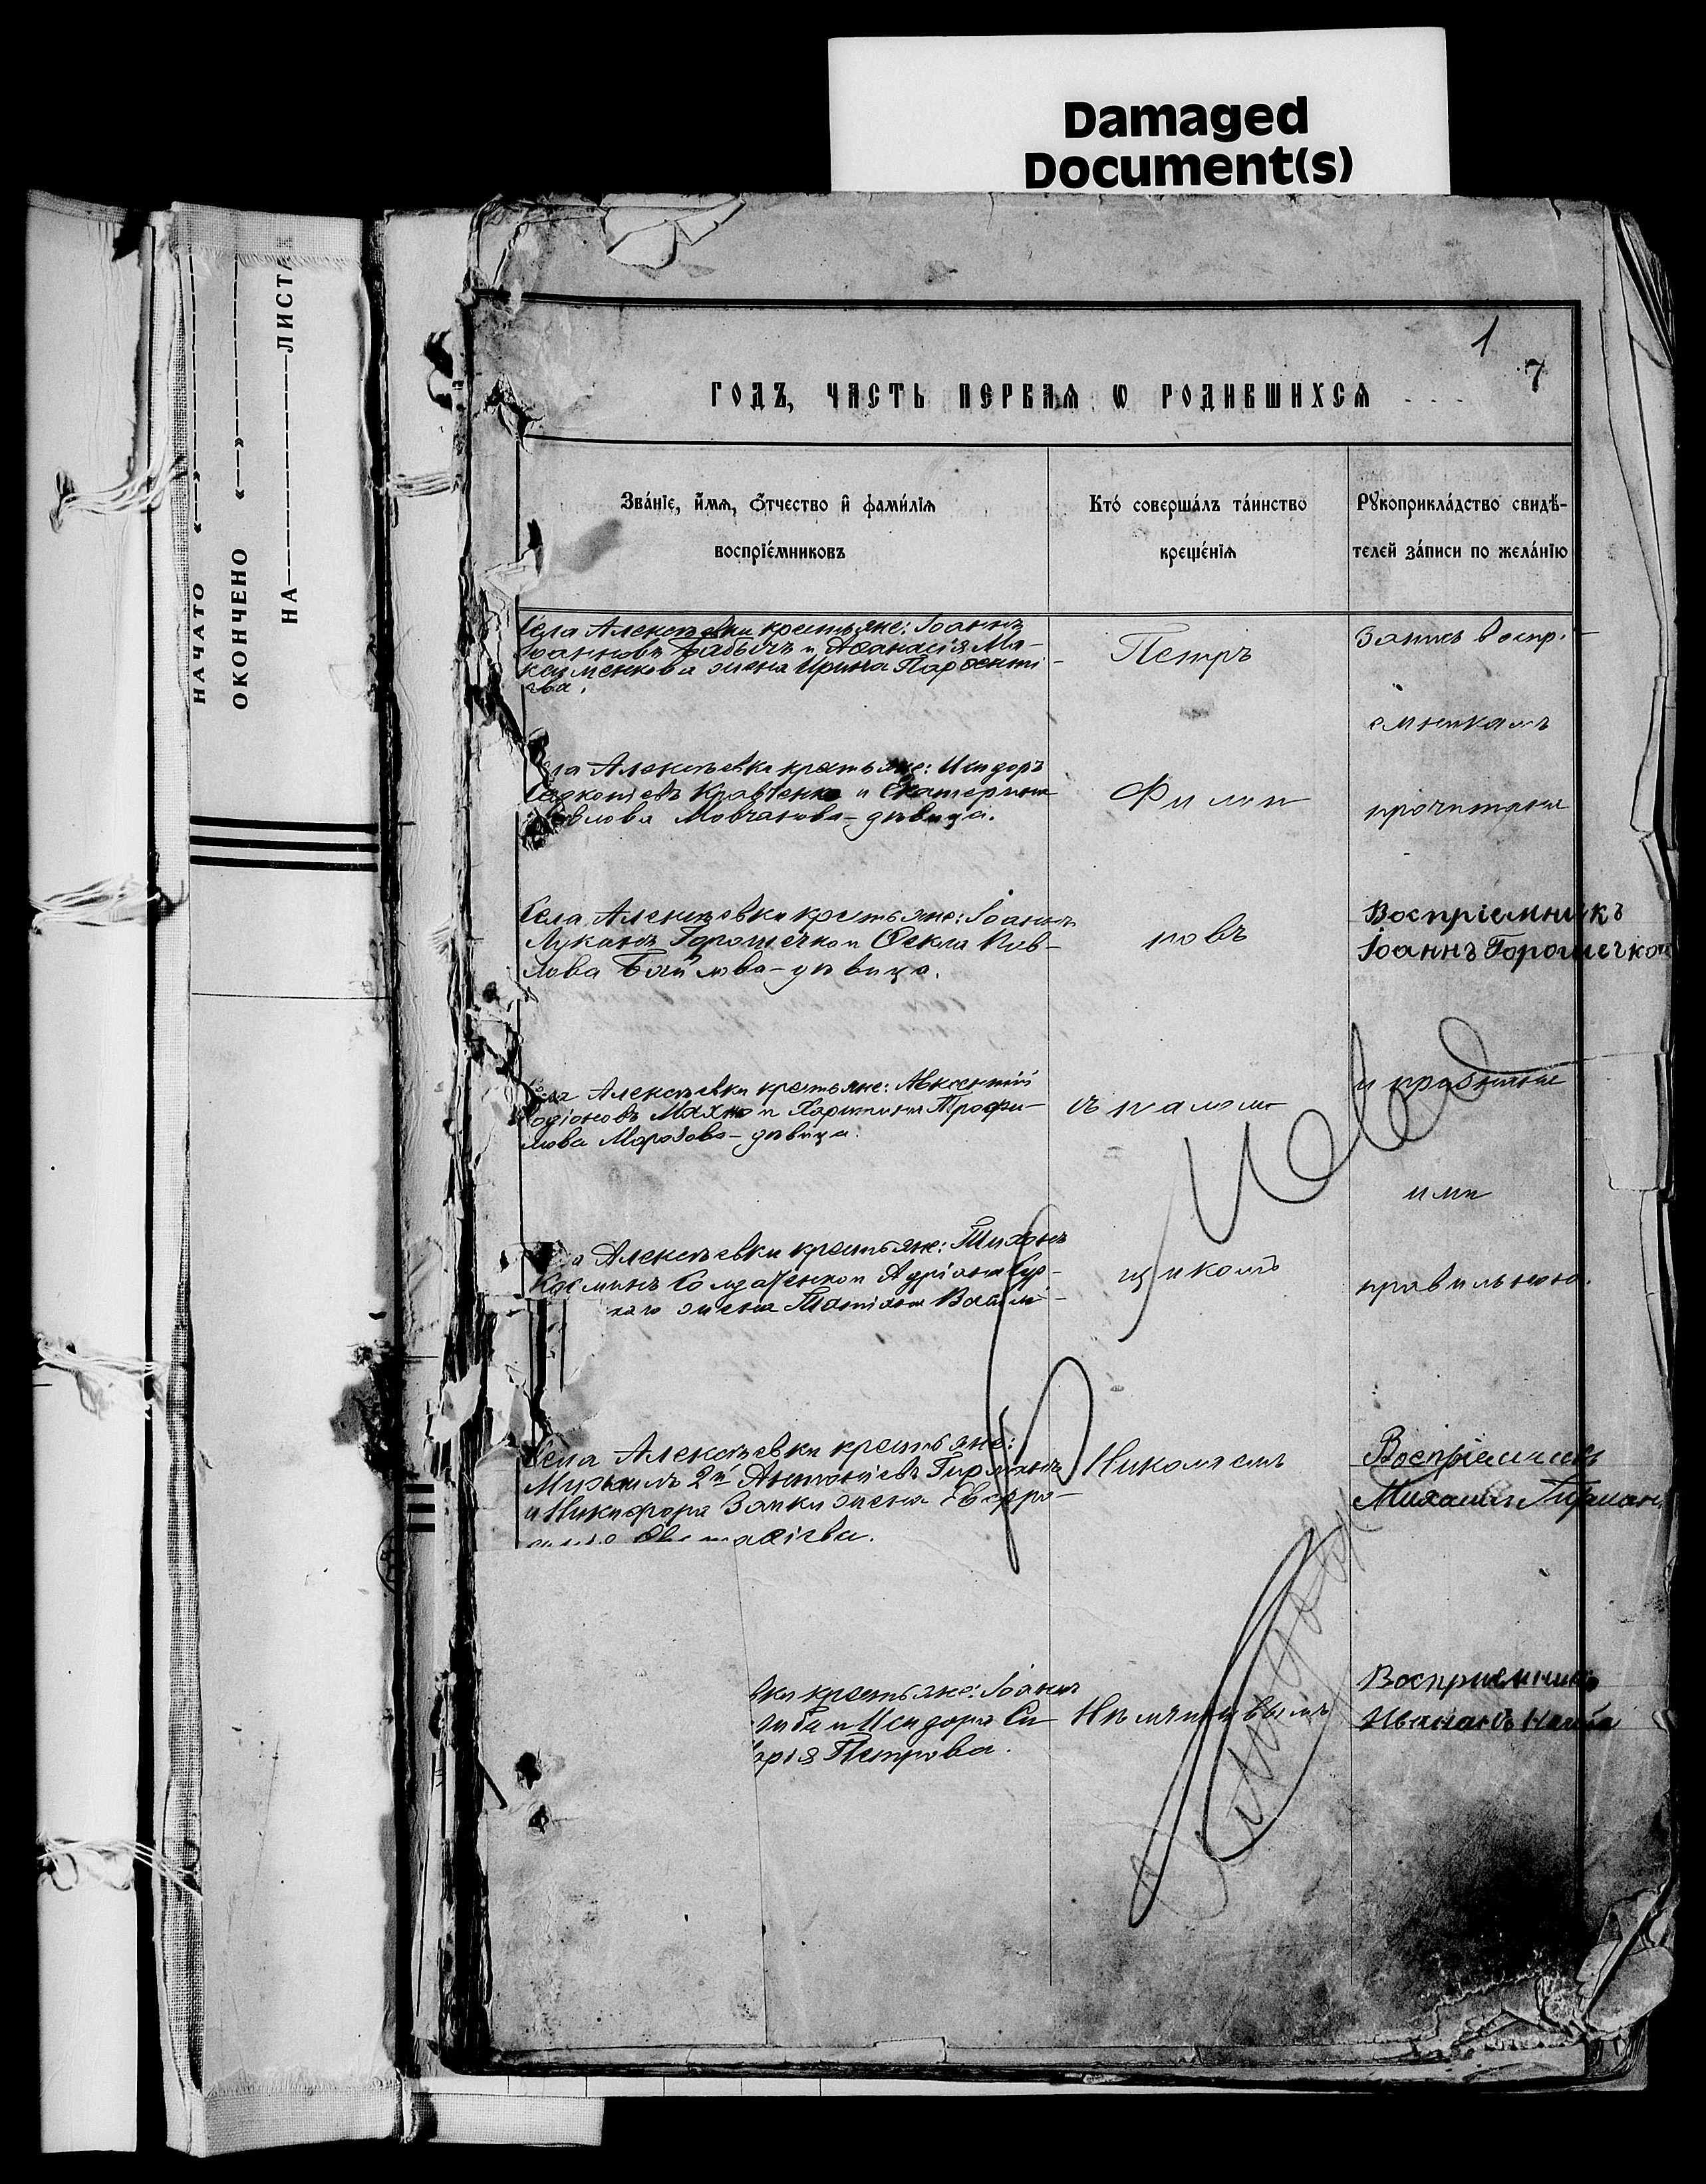 Damaged
Document(s)
НАЧАТО «—»
ОКОНЧЕНО «—»
НА ЛИСТАХ
1
7
ГОДЪ, ЧАСТЬ ПЕРВАЯ Ѡ РОДИВШИХСЯ
Зва́нїе, и҆́мѧ, ѻ҆́тчество и҆ фами́лїѧ
воспрїе́мниковъ
Кто́ соверша́лъ та́инство
креще́нїѧ
Рꙋкоприкла́дство свидѣ-
телей за́писи по жела́нїю
Села Алексѣевки крестьяне: Іоаннъ
Іоанновъ Бабычъ и Аѳанасія Ма-
ксименкова жена Ирина Парѳенті-
ева.
Петръ
Запись воспр.-
емникамъ
Алексѣевки крестьяне: Исидоръ
Кравченко и Екатерина
Мовчанова - дѣвица.
Филип
прочитана
Села Алексѣевки крестьяне: Іоаннъ
Лукинъ Горошечко и Ѳекла Пав-
лова - дѣвица.
повъ
Воспріемникъ
Іоаннъ Горошечко
Села Алексѣевки крестьяне: Авксентій
Родіоновъ Махно и Харитина Трофи-
мова Морозова - дѣвица.
съ псалом-
и признана
ими
Алексѣевки крестьяне: Тихонъ
Косминъ Солдатенко и Адріана
жена Татіана Васил-
щикомъ
правильною.
Села Алексѣевки крестьяне:
Михаилъ 2й Антоніевъ Гирманъ
и Никифора Замки жена Евфро-
Николаемъ
Воспріемникъ
Михаилъ Гирман
крестьяне: Іоаннъ
и Исидора Си
Петрова.
Воспріемникъ